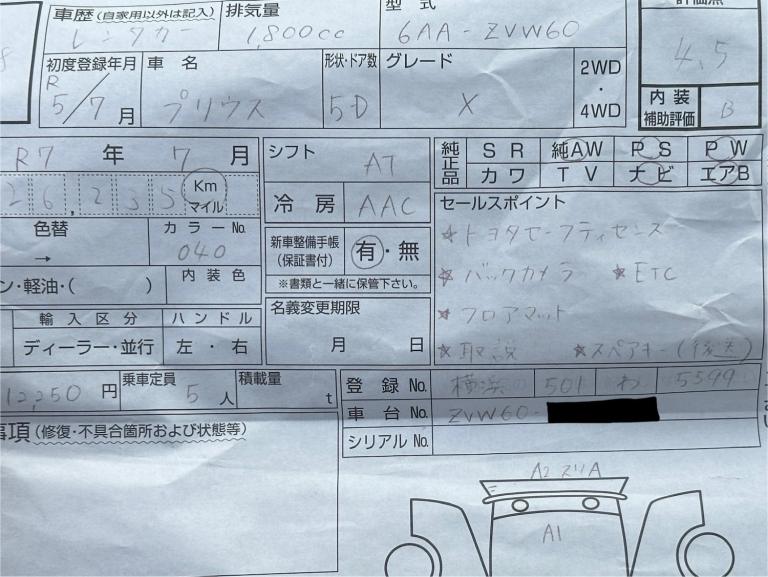 車歴 (自家用以外は記入) 排気量 型式 評価点
レンタカー 1,800cc 6AA-ZVW60 4.5
初度登録年月 車名 形状・ドア数 グレード 2WD・4WD
R5/7月 プリウス 5D X
内装補助評価 B
R7年 7月 シフト AT
26,235 Km マイル 冷房 AAC
純正品 SR 純AW PS PW
カワ TV ナビ エアB
色替 → カラーNo. 040
新車整備手帳 (保証書付) 有・無
※書類と一緒に保管下さい。
セールスポイント
☆トヨタセーフティセンス
☆バックカメラ ☆ETC
☆フロアマット
☆取説 ☆スペアキー(後送)
ン・軽油・( ) 内装色
名義変更期限 月 日
輸入区分 ハンドル
ディーラー・並行 左・右
12,250円 乗車定員 5人 積載量 t
登録No. 横浜 501 わ 5599
車台No. ZVW60-
シリアルNo.
事項 (修復・不具合箇所および状態等)
A2 スリA
A1